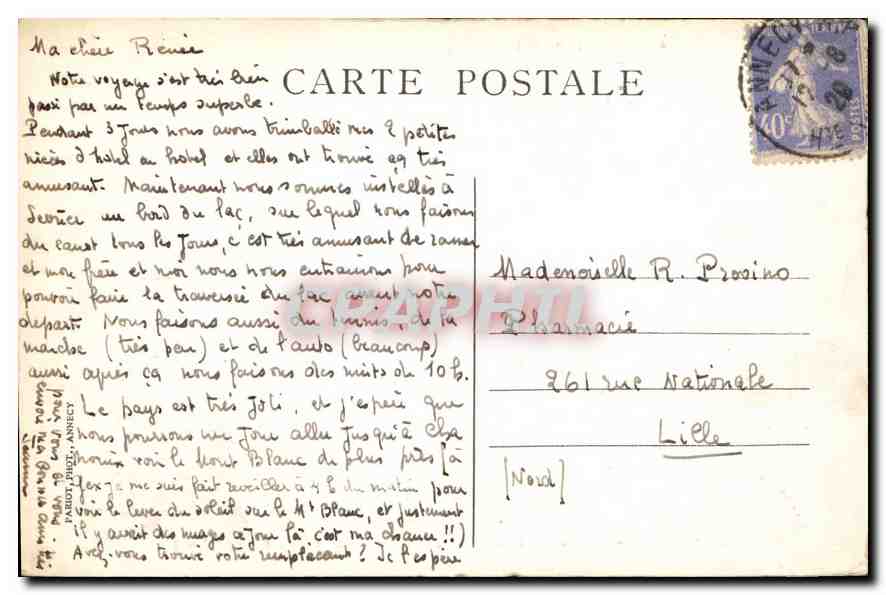 Ma chère Renée
Notre voyage s'est très bien
passé par un temps superbe.
Pendant 3 jours nous avons trimballé mes 2 petites
nièces d'hôtel en hôtel et elles ont trouvé ça très
amusant. Maintenant nous sommes installés à
au bord du lac, sur lequel nous faisons
du canot tous les jours, c'est très amusant de ramer
et mon frère et moi nous nous entrainons pour
pouvoir faire la traversée du lac avant notre
départ. Nous faisons aussi du tennis, de la
marche (très peu) et de l'auto (beaucoup)
aussi après ça nous faisons des nuits de 10 h.
Le pays est très joli, et j'espère que
nous pourrons un jour aller jusqu'à Cha
monix voir le Mont Blanc de plus près (à
Gex je me suis fait reveiller à 4 h du matin pour
voir le lever du soleil sur le Mt Blanc, et justement
il y avait des nuages ce jour là, c'est ma chance !!)
Avez-vous trouvé votre remplaçant? Je l'espère
pour vous et vous
envoie mes
CARTE POSTALE
ANNECY
12
8
40c
POSTES
Mademoiselle R. Prosino
Pharmacie
261 rue Nationale
Lille
[Nord]
PARIOT, PHOT., ANNECY
CRAPHTI